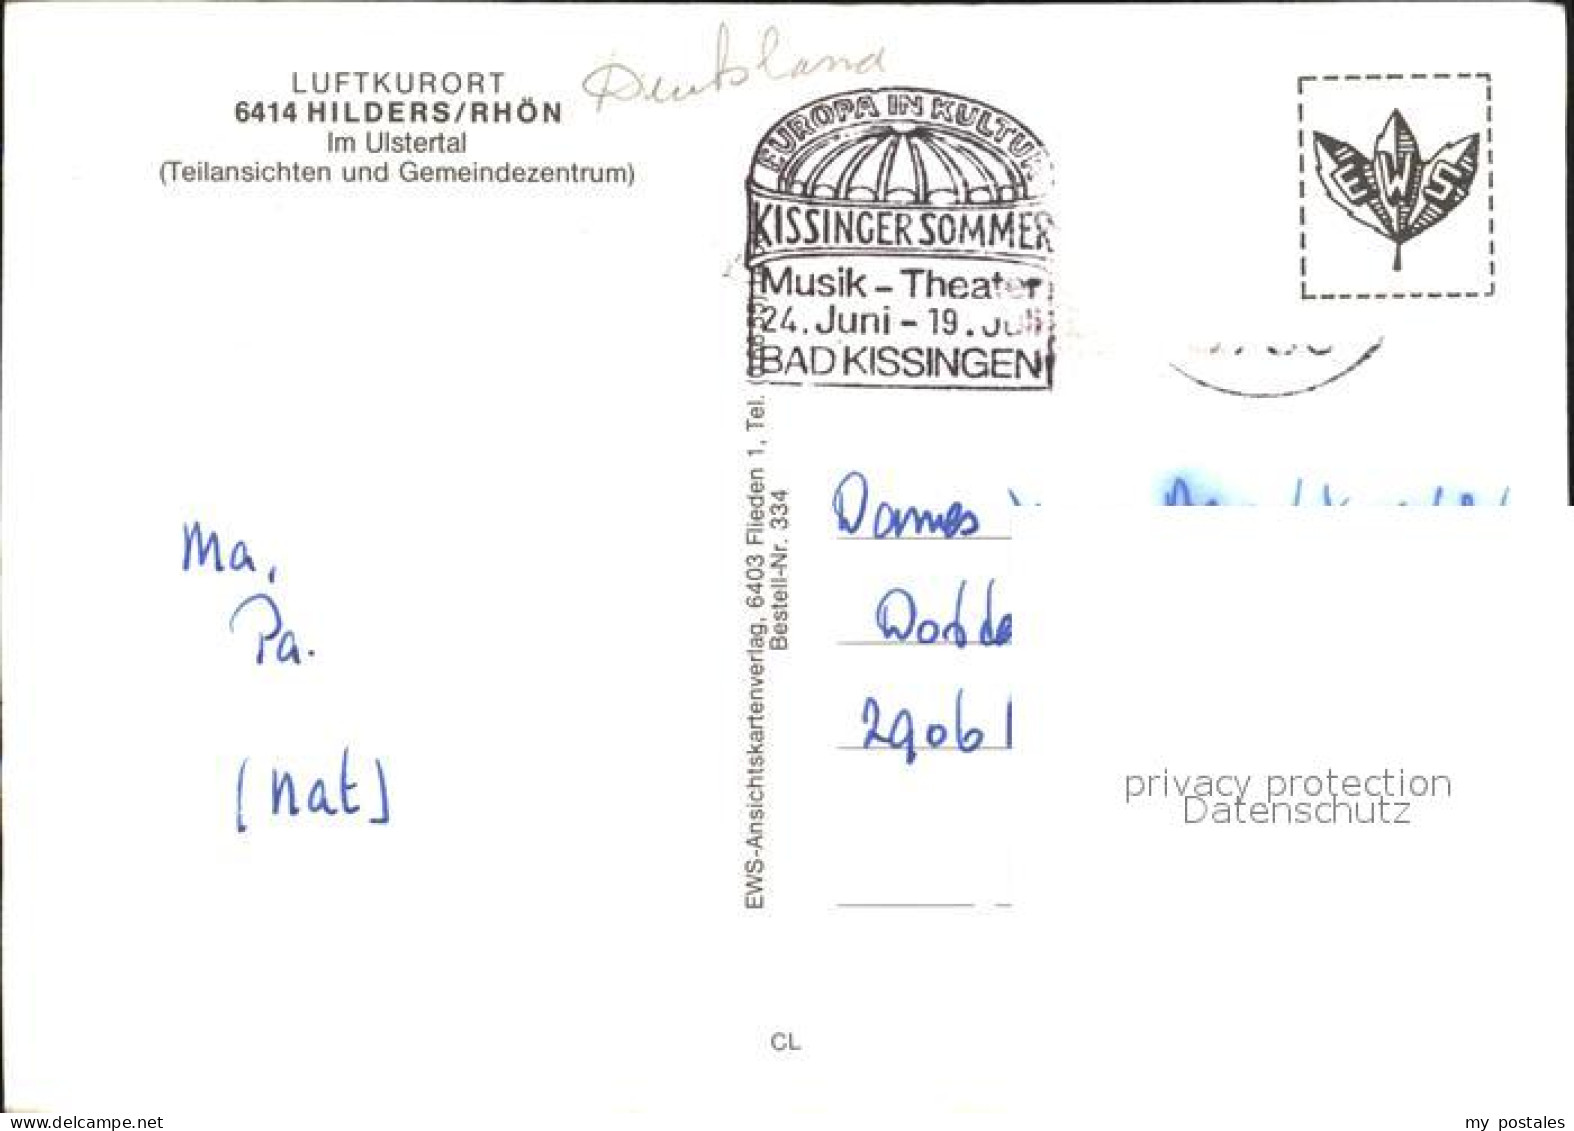 LUFTKURORT
6414 HILDERS/RHÖN
Im Ulstertal
(Teilansichten und Gemeindezentrum)
Deutsland
EUROPA IN KULTUR
KISSINGER SOMMER
Musik - Theater
24. Juni - 19. Juli
BAD KISSINGEN
EWS
Ma,
Pa.
(nat)
EWS-Ansichtskartenverlag, 6403 Flieden 1, Tel.
Bestell-Nr. 334
Dames
2906
privacy protection
Datenschutz
CL
delcampe.net
my postales